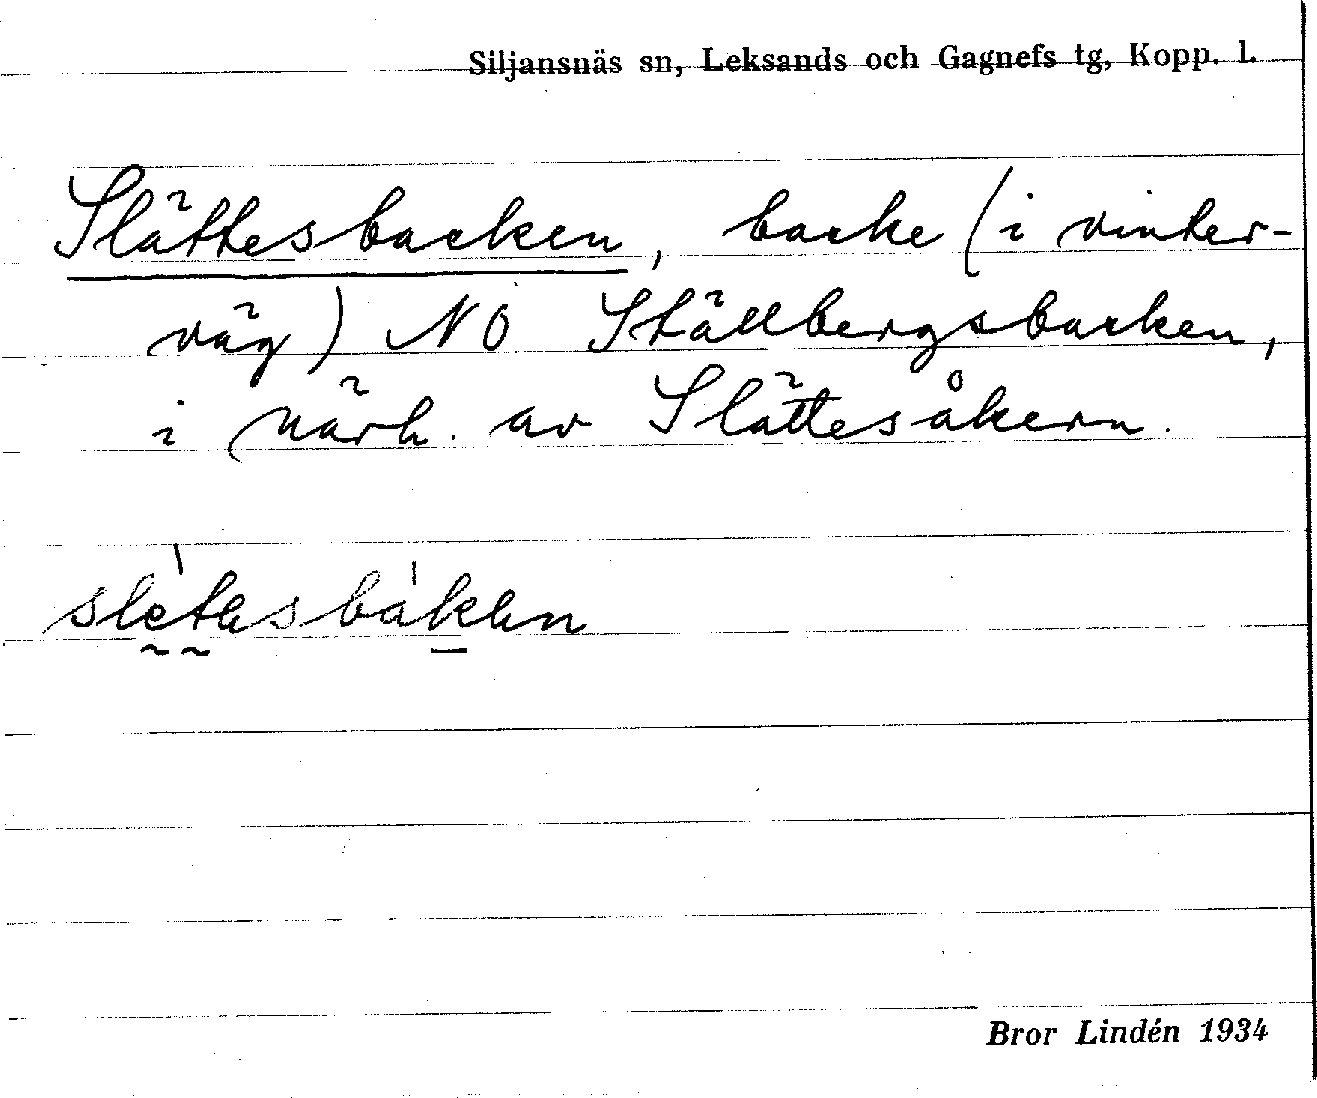 Siljansnäs sn, Leksands och Gagnefs tg, Kopp. l.
Slättesbacken, backe (i vinter-
väg) NO Ställbergsbacken,
i närh. av Slättesåkern.
Bror Lindén 1934